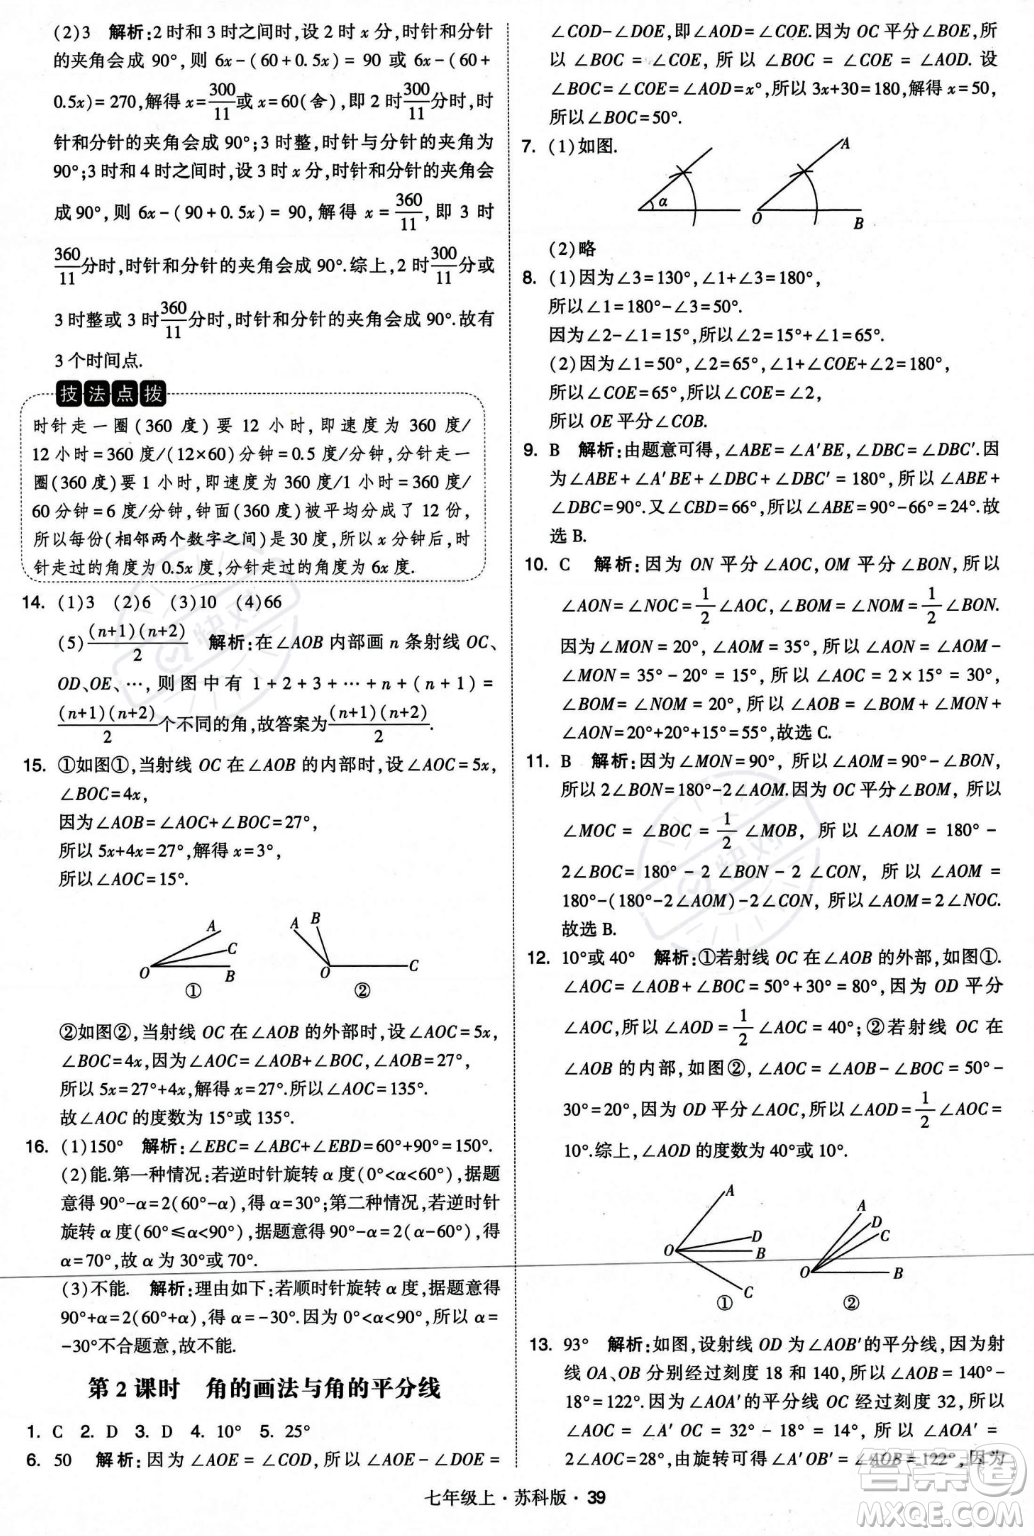 (2)3 解析:2时和3时之间,设2时x分,时针和分针
的夹角会成90°,则6x-(60+0.5x)=90或6x-(60+
0.5x)=270,解得x=300/11或x=60(舍),即2时300/11分时,时
针和分针的夹角会成90°;3时整,时针与分针的夹角为
90°;3时和4时之间,设3时x分,时针和分针的夹角会
成90°,则6x-(90+0.5x)=90,解得x=360/11,即3时
360/11分时,时针和分针的夹角会成90°.综上,2时300/11分或
3时整或3时360/11分时,时针和分针的夹角会成90°.故有
3个时间点.
技法点拨
时针走一圈(360度)要12小时,即速度为360度/
12小时=360度/(12×60)分钟=0.5度/分钟,分针走一
圈(360度)要1小时,即速度为360度/1小时=360度/
60分钟=6度/分钟,钟面(360度)被平均分成了12份,
所以每份(相邻两个数字之间)是30度,所以x分钟后,时
针走过的角度为0.5x度,分针走过的角度为6x度.
14. (1)3 (2)6 (3)10 (4)66
(5)(n+1)(n+2)/2 解析:在∠AOB内部画n条射线OC、
OD、OE、…,则图中有1+2+3+…+n+(n+1)=
(n+1)(n+2)/2个不同的角,故答案为(n+1)(n+2)/2.
15. ①如图①,当射线OC在∠AOB的内部时,设∠AOC=5x,
∠BOC=4x,
因为∠AOB=∠AOC+∠BOC=27°,
所以5x+4x=27°,解得x=3°,
所以∠AOC=15°.
A
C
O
B
①
A
B
O
C
②
②如图②,当射线OC在∠AOB的外部时,设∠AOC=5x,
∠BOC=4x,因为∠AOC=∠AOB+∠BOC,
所以5x=27°+4x,解得x=27°.所以∠AOC=135°.
故∠AOC的度数为15°或135°.
16. (1)150° 解析:∠EBC=∠ABC+∠EBD=60°+90°=150°.
(2)能.第一种情况:若逆时针旋转α度(0°<α<60°),据题
意得90°-α=2(60°-α),得α=30°;第二种情况,若逆时针
旋转α度(60°≤α<90°),据题意得90°-α=2(α-60°),得
α=70°,故α=30°或70°.
(3)不能. 解析:理由如下:若顺时针旋转α度,据题意得
90°+α=2(60°+α),得α=-30°.因为0°<α<90°,α=
-30°不合题意,故不能.
第2课时 角的画法与角的平分线
1. C 2. D 3. D 4. 10° 5. 25°
6. 50 解析:因为∠AOE=∠COD,所以∠AOE-∠DOE=
∠COD-∠DOE,即∠AOD=∠COE.因为OC平分∠BOE,所
以∠BOC=∠COE,所以∠BOC=∠COE=∠AOD.设
∠BOC=∠COE=∠AOD=x°,所以3x+30=180,解得x=50,
所以∠BOC=50°.
7. (1)如图.
α
A
O
B
(2)略
8. (1)因为∠3=130°,∠1+∠3=180°,
所以∠1=180°-∠3=50°.
因为∠2-∠1=15°,所以∠2=15°+∠1=65°.
(2)因为∠1=50°,∠2=65°,∠1+∠COE+∠2=180°,
所以∠COE=65°,所以∠COE=∠2,
所以OE平分∠COB.
9. B 解析:由题意可得,∠ABE=∠A'BE,∠DBC=∠DBC'.因
为∠ABE+∠A'BE+∠DBC+∠DBC'=180°,所以∠ABE+
∠DBC=90°.又∠CBD=66°,所以∠ABE=90°-66°=24°.故
选B.
10. C 解析:因为ON平分∠AOC,OM平分∠BON,所以
∠AON=∠NOC=1/2∠AOC,∠BOM=∠NOM=1/2∠BON.
因为∠MON=20°,∠AOM=35°,所以∠AON=∠AOM-
∠MON=35°-20°=15°,所以∠AOC=2×15°=30°,
∠BOM=∠NOM=20°,所以∠AOB=∠BOM+∠NOM+
∠AON=20°+20°+15°=55°,故选C.
11. B 解析:因为∠MON=90°,所以∠AOM=90°-∠BON,
所以2∠BON=180°-2∠AOM.因为OC平分∠BOM,所以
∠MOC=∠BOC=1/2∠MOB,所以∠AOM=180°-
2∠BOC=180°-2(∠BON+∠CON),所以∠AOM=
180°-(180°-2∠AOM)-2∠CON,所以∠AOM=2∠NOC.
故选B.
12. 10°或40° 解析:①若射线OC在∠AOB的外部,如图①.
∠AOC=∠AOB+∠BOC=50°+30°=80°,因为OD平分
∠AOC,所以∠AOD=1/2∠AOC=40°;②若射线OC在
∠AOB的内部,如图②,∠AOC=∠AOB-∠BOC=50°-
30°=20°,因为OD平分∠AOC,所以∠AOD=1/2∠AOC=
10°.综上,∠AOD的度数为40°或10°.
A
D
O
B
C
①
A
D
C
O
B
②
13. 93° 解析:如图,设射线OD为∠AOB'的平分线,因为射
线OA、OB分别经过刻度18和140,所以∠AOB=140°-
18°=122°.因为∠AOA'的平分线OC经过刻度32,所以
∠AOC=∠A'OC=32°-18°=14°,所以∠AOA'=
2∠AOC=28°,由旋转可得∠A'OB'=∠AOB=122°,因为
七年级上·苏科版·39
答案圈
MXQE.COM